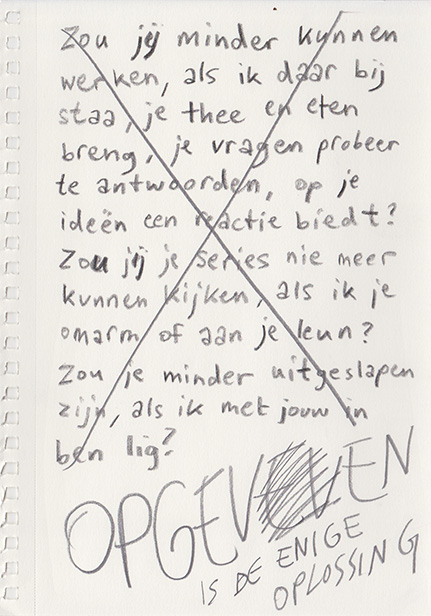 Zou jij minder kunnen
werken, als ik daar bij
staa, je thee en eten
breng, je vragen probeer
te antwoorden, op je
ideën een reactie biedt?
Zou jij je series nie meer
kunnen kijken, als ik je
omarm of aan je leun?
Zou je minder uitgeslapen
zijn, als ik met jouw in
ben lig?
OPGEVEN
IS DE ENIGE
OPLOSSING